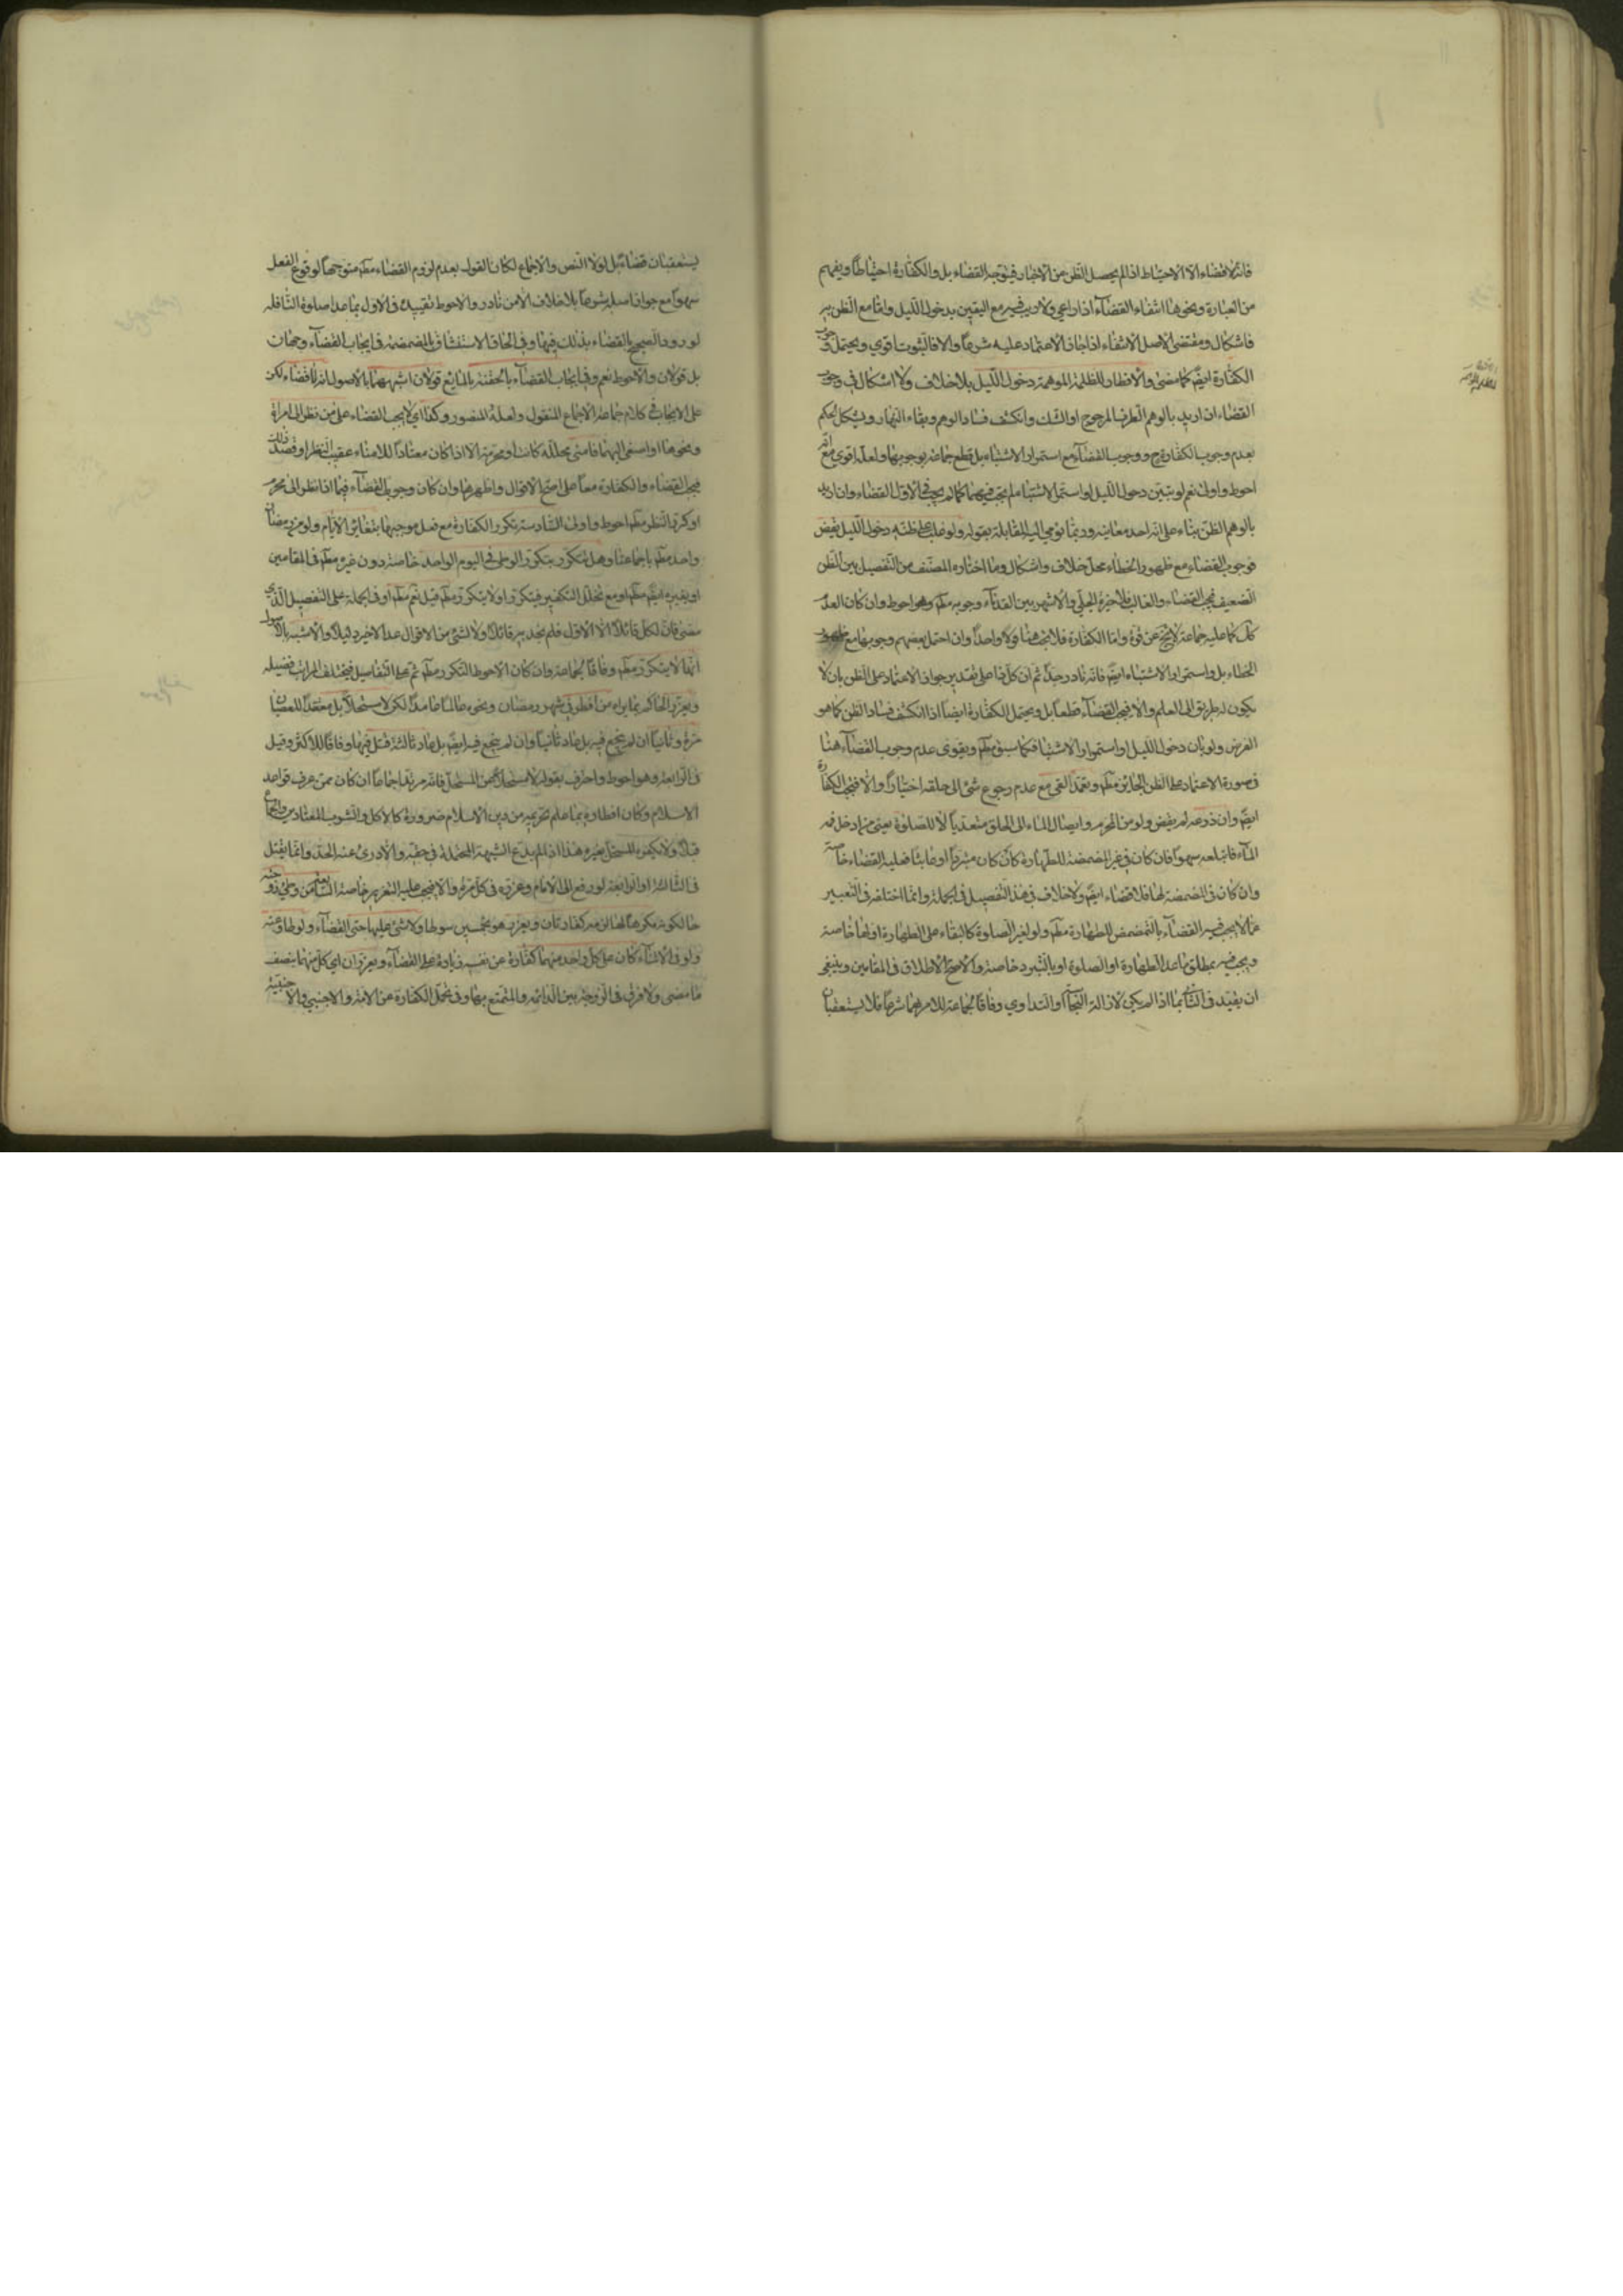 فانه لا قضاء الا الاحتياط اذا لم يحصل الظن من الاخبار فيتوجه القضاء بل والكفارة احتياطا ويفهم
من العبارة ونحوها انتفاء القضاء اذا راعي ولا ريب فيه مع اليقين بدخول الليل واما مع الظن به
فاشكال ومقتضى الاصل الانتفاء اذا جاز الاعتماد عليه شرعا والا فالثبوت اقوي ويحتمل وجوب
الكفارة ايضا كما مضى والافطار للظلمة الموهمة دخول الليل بلا خلاف ولا اشكال في وجوب
القضاء ان اريد بالوهم الطرف المرجوح او الشك وانكشف فساد الوهم وبقاء النهار ويشكل الحكم
بعدم وجوب الكفارة ح ووجوب القضاء مع استمرار الاشتباه بل قطع جماعة بوجوبها ولعله اقوي مع انه
احوط واولى نعم لو تبين دخول الليل او استمر الاشتباه لم يجب فيهما كما لم يجب في الاول القضاء وان اريد
بالوهم الظن بناء على انه احد معانيه وربما يومي اليه المقابلة بقوله ولو غلب على ظنه دخول الليل لم يقض
فوجوب القضاء مع ظهور الخطاء محل خلاف واشكال وما اختاره المصنف من التفصيل بين الظن
الضعيف فيجب القضاء والغالب فلا خيرة الحلي والاشهر بين القدماء وجوبه مط وهو احوط وان كان العدم
كك كما عليه جماعة لا يخ عن قوة واما الكفارة فلا تجب هنا قولا واحدا وان احتمل بعضهم وجوبها مع ظهور
الخطاء بل واستمرار الاشتباه ايضا فانه نادر جدا ثم ان كل ذا على تقدير جواز الاعتماد على الظن بان لا
يكون له طريق الى العلم والا فيجب القضاء قطعا بل ويحتمل الكفارة ايضا اذا انكشف فساد الظن كما هو
الفرض ولو بان دخول الليل او استمرار الاشتباه فكما سبق مط ويقوى عدم وجوب القضاء هنا
في صورة الاعتماد على الظن الجايز مط وتعمد القي مع عدم رجوع شئ الى حلقه اختيارا والا فيجب الكفارة
ايضا وان ذرعه لم يقض ولو من المحرم وايصال الماء الى الحلق متعديا لا للصلوة يعني من ادخل فمه
الماء فابتلعه سهوا فان كان في غير المضمضة للطهارة كأن كان متبردا او عابثا فعليه القضاء خاصة
وان كان في المضمضة لها فلا قضاء ايضا ولا خلاف في هذا التفصيل في الجملة وانما اختلف في التعبير
عما لا يجب فيه القضاء بالتمضمض للطهارة مط ولو لغير الصلوة كالبقاء على الطهارة او لها خاصة
ويجب فيه بمطلق ما عدا الطهارة او الصلوة او بالتبرد خاصة والاصح الاطلاق في المقامين وينبغي
ان يقيد في الثاني بما اذا لم يكن لازالة النجاسة او التداوي وفاقا لجماعة للامر بهما شرعا فلا يستعقبان
يستعقبان قضاء بل لولا النص والاجماع لكان القول بعدم لزوم القضاء مط متوجها لوقوع الفعل
سهوا مع جواز اصله شرعا بلا خلاف الا من نادر والاحوط تقييد في الاول بما عدا صلوة النافلة
لورود الصحيح بالقضاء بذلك فيها وفي الحاق الاستنشاق بالمضمضة في ايجاب القضاء وجهان
بل قولان والاحوط نعم وفي ايجاب القضاء بالحقنة بالمايع قولان اشبههما بالاصول انه لا قضاء لكن
على الايجاب في كلام جماعة الاجماع المنقول ولعله المنصور وكذا اي لا يجب القضاء على من نظر الى امراة
ونحوها او اصغى اليها فامنى محللة كانت او محرمة الا اذا كان معتادا للامناء عقيب النظر او قصد ذلك
فيجب القضاء والكفارة معا على اصح الاقوال واظهرها وان كان وجوب القضاء فيما اذا نظر الى محرم
او كرر النظر مط احوط واولى السادسة تتكرر الكفارة مع فعل موجبها بتغاير الايام ولو من رمضان
واحد مط باجماعنا وهل تتكرر بتكرر الوطي في اليوم الواحد خاصة دون غيره مط في المقامين
او بغيره ايضا مط او مع تخلل التكفير فيتكرر او لا يتكرر مط قيل نعم مط او في الجملة على التفصيل الذي
مضى فان لكل قائلا الا الاول فلم نجد به قائلا ولا لشئ من الاقوال عدا الاخير دليلا والاشبه بالاصول
انها لا يتكرر مط وفاقا لجماعة وان كان الاحوط التكرر مط ثم على التفاصيل فيختلف المراتب فضيلة
ويعزر الحاكم بما يراه من افطر في شهر رمضان ونحوه عالما عامدا لكن لا مستحلا بل معتقدا للعصيان
مرة وثانيا ان لم ينجع فيه بل عاد ثانيا وان لم ينجع فيه ايضا بل عاد ثالثة قتل فيها وفاقا للاكثر وقيل
في الرابعة وهو احوط واحترف بقوله لا مستحلا عن المستحل فانه مرتد اجماعا ان كان ممن عرف قواعد
الاسلام وكان افطاره بما علم تحريمه من دين الاسلام ضرورة كالاكل والشرب المعتادين والجماع
قبلا ولا يكفر المستحل بغيره هذا اذا لم يدع الشبهة المحتملة في حقه والا درئ عنه الحد وانما يقتل
في الثالثة او الرابعة لو رفع الى الامام وعزره في كل مرة والا فيجب عليه التعزير خاصة السابعة من وطئ زوجته
حالكونه مكرها لها لزمه كفارتان ويعزر هو بخمسين سوطا ولا شئ عليها حتى القضاء ولو طاوعته
ولو في الاثناء كان على كل واحد منهما كفارة عن نفسه زيادة على القضاء ويعزران اي كل منهما بنصف
ما مضى ولا فرق في الزوجة بين الدائمة والمتمتع بها وفي تحمل الكفارة عن الامة والاجنبي والاجنبية